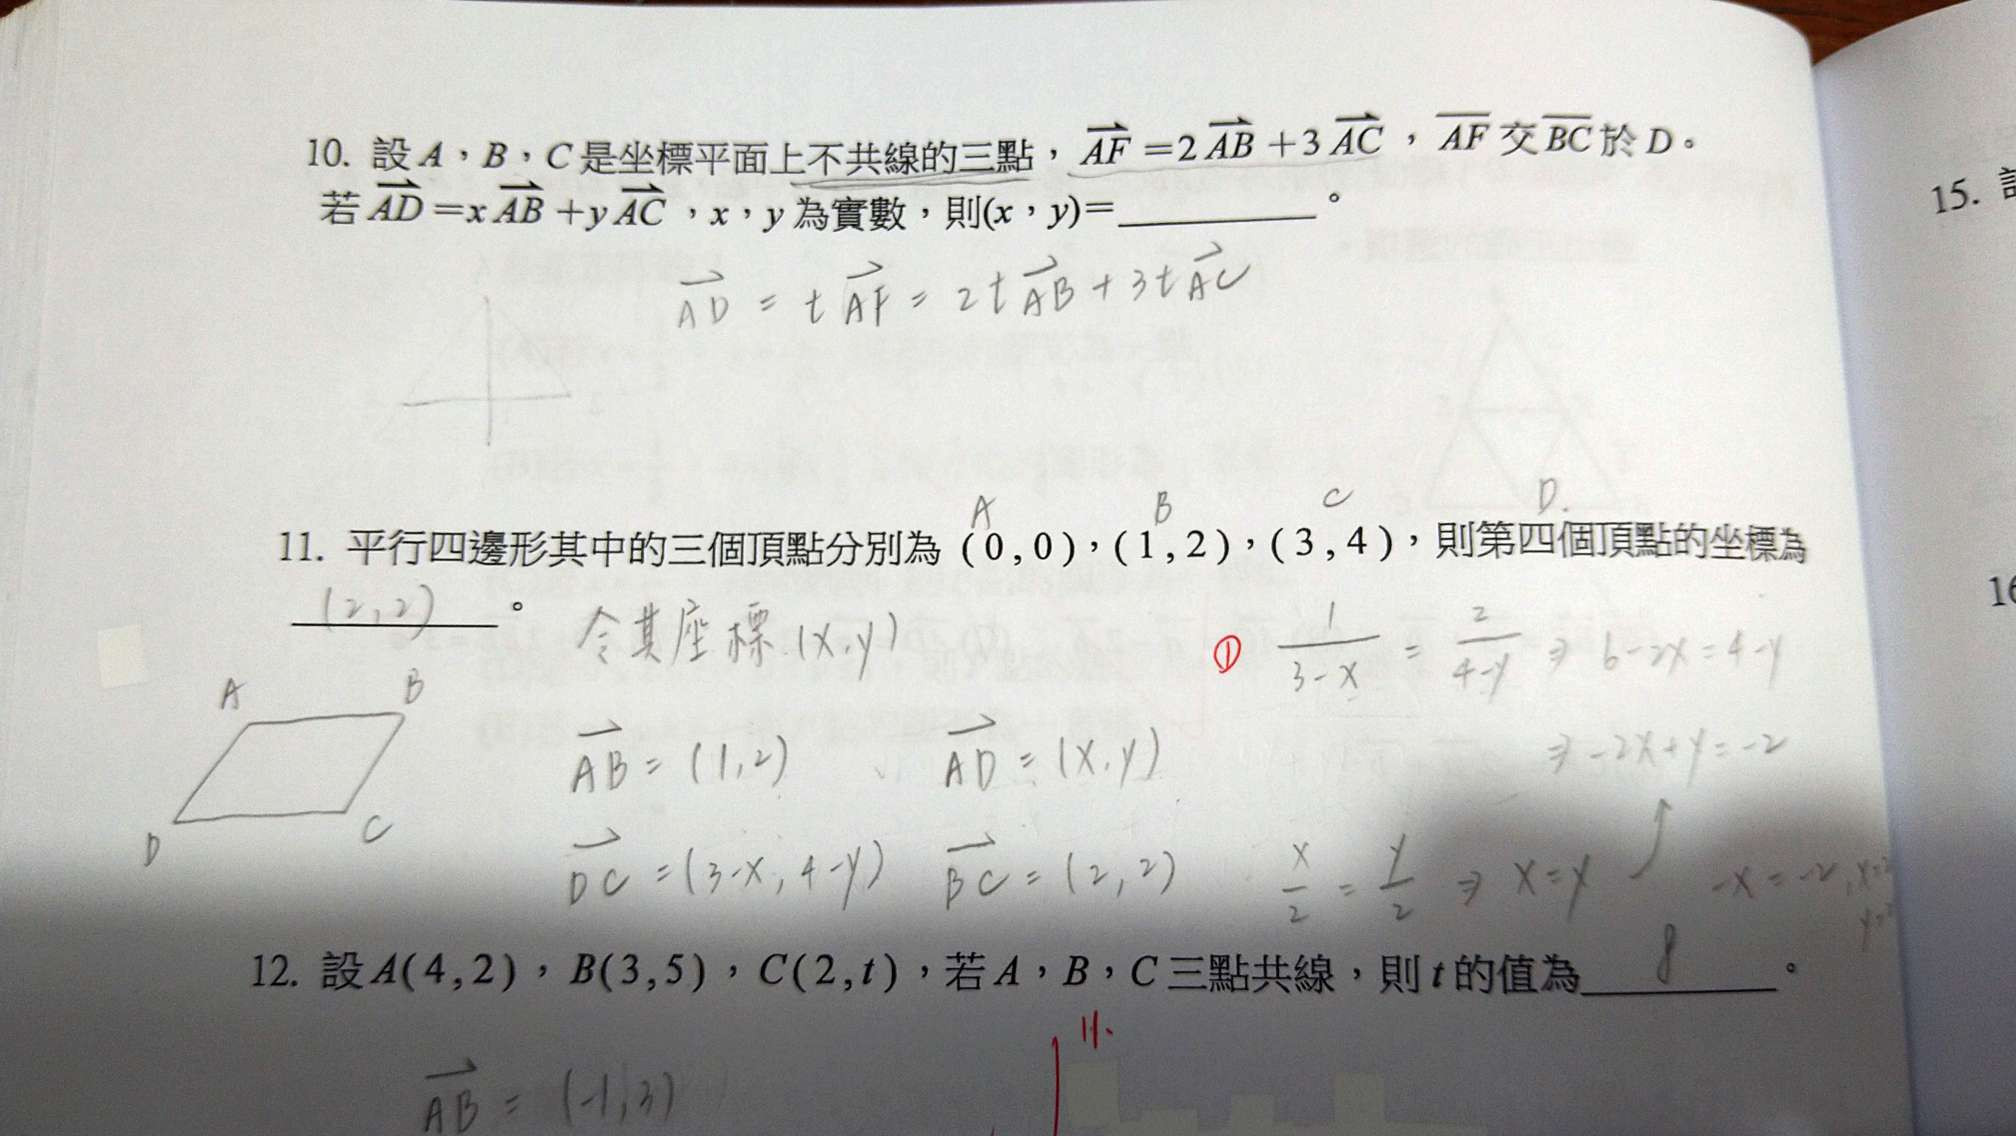 10. 設 A，B，C 是坐標平面上不共線的三點，AF⃗ =2 AB⃗ +3 AC⃗，A̅F̅ 交 B̅C̅ 於 D。
若 AD⃗ =x AB⃗ +y AC⃗，x，y 為實數，則(x，y)=________。
AD⃗ = t AF⃗ = 2t AB⃗ + 3t AC⃗
A B C D.
11. 平行四邊形其中的三個頂點分別為 (0,0)，(1,2)，(3,4)，則第四個頂點的坐標為
(2,2)。
令其座標(x,y)
① 1/(3-x) = 2/(4-y) ⇒ 6-2x=4-y
A B
AB⃗ = (1,2) AD⃗ = (x,y) ⇒ -2x+y=-2
D C
DC⃗ =(3-x, 4-y) BC⃗ = (2,2) x/2 = y/2 ⇒ x=y -x=-2
12. 設 A(4,2)，B(3,5)，C(2,t)，若 A，B，C 三點共線，則 t 的值為 8。
11.
AB⃗ = (-1,3)
15.
16